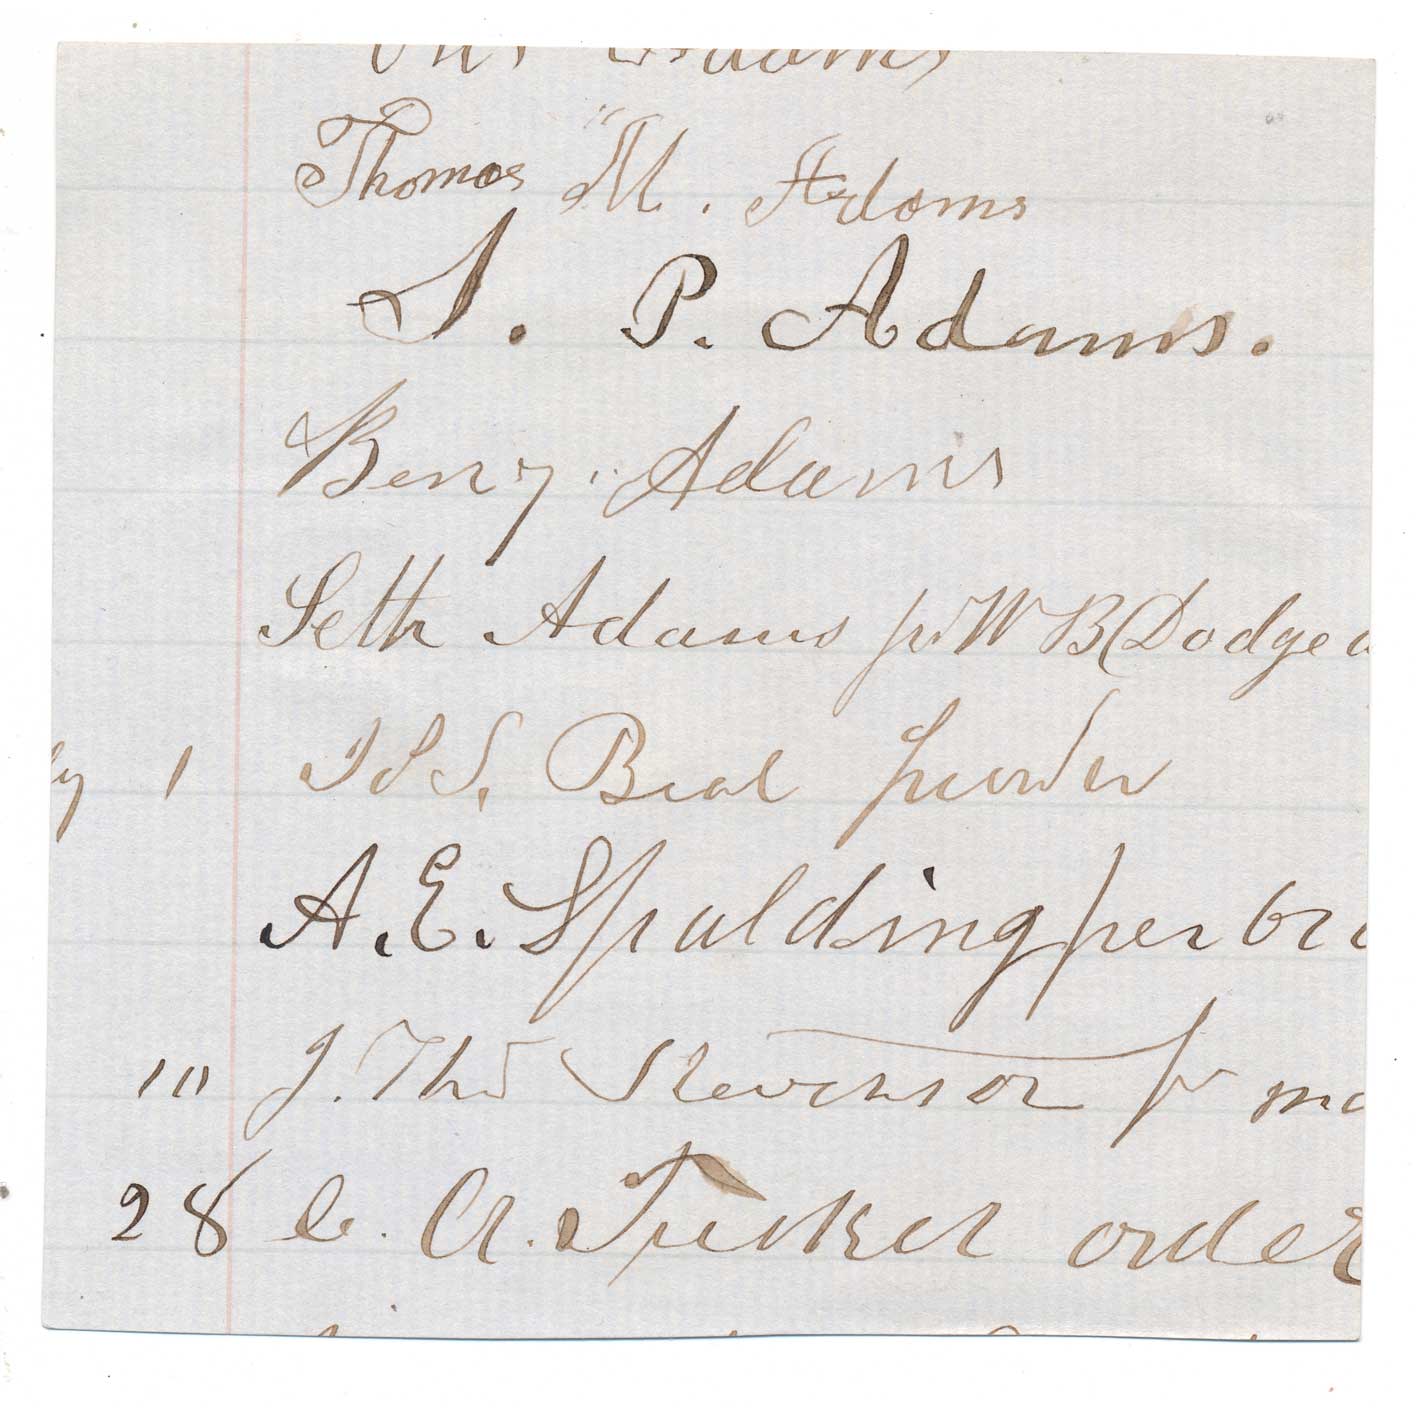 Adams
Thomas M. Adams
S. P. Adams.
Benj. Adams
Seth Adams pr W B Dodge a
ly 1 J & S. Beal
A. E. Spalding per br
10 J. Thos Stevenson pr
28 C. A. Tucker order